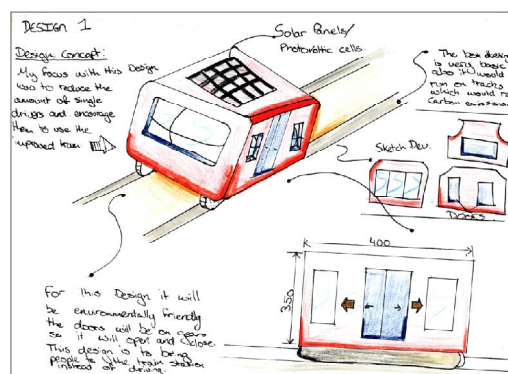 DESIGN 1
Solar Panels/
Photovoltic cells.
Design Concept:
My focus with this Design
was to reduce the
amount of single
drivers and encourage
them to use the
improved tram
The box design
is very basic
also it would
run on tracks
which would
Carbon emissions
Sketch Dev.
DOORS
400
350
For this Design it will
be environmentally friendly
the doors will be on gears
so it will open and close.
This design is to bring
people to the train station
instead of driving.